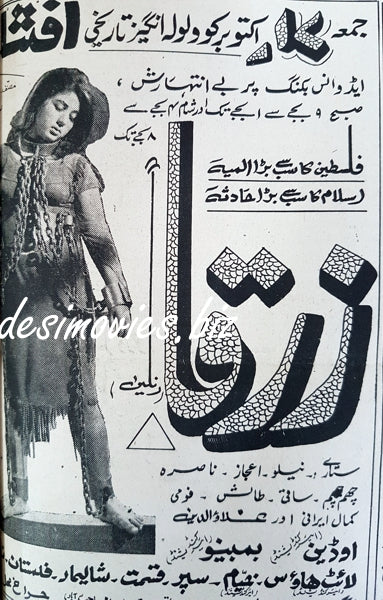 جمعہ ۱۷ اکتوبر کو ولولہ انگیز تاریخی افتتا
ایڈوانس بکنگ پر بے انتہا رش،
صبح ۹ بجے سے ۱ بجے تک اور شام ۴ بجے سے
۸ بجے تک
فلسطین کا سب سے بڑا المیہ
اسلام کا سب سے بڑا حادثہ
زرقا
(رنگین)
desimovies.biz
ستارے:۔ نیلو۔ اعجاز۔ ناصرہ
چھم چھم۔ ساقی۔ طالش۔ قومی
کمال ایرانی اور علاؤالدین
اوڈین بمبینو
لائٹ ہاؤس۔ خیام۔ سپر۔ قسمت۔ شالیمار۔ فلستان۔